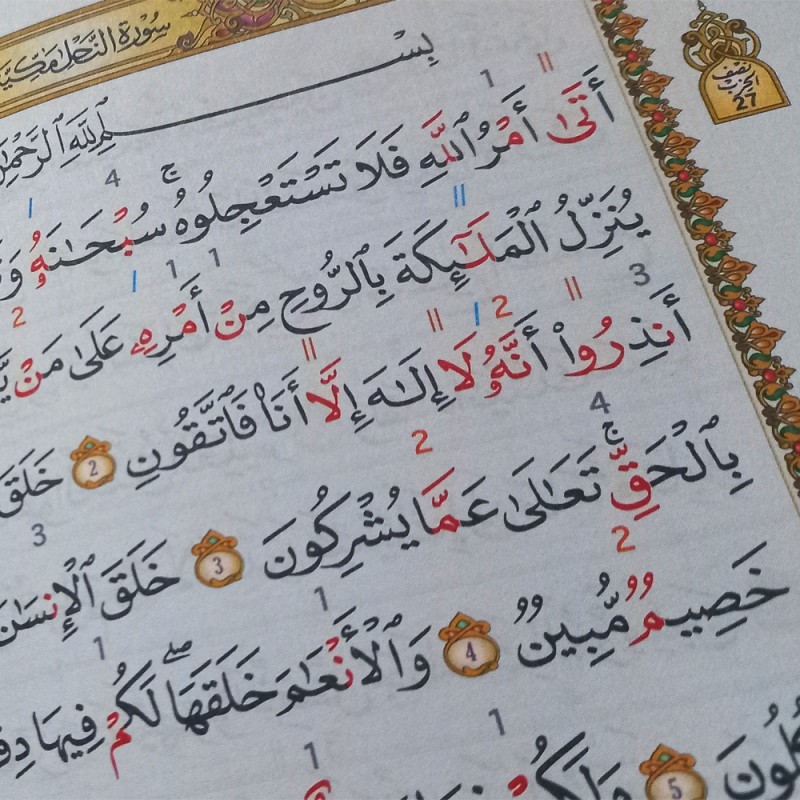 سُورَةُ النَّحْلِ مَكِّيَّة
نصف الحزب 27
بِسْمِ اللَّهِ الرَّحْمَٰنِ
أَتَىٰٓ أَمْرُ ٱللَّهِ فَلَا تَسْتَعْجِلُوهُ ۚ سُبْحَـٰنَهُۥ
يُنَزِّلُ ٱلْمَلَـٰٓئِكَةَ بِٱلرُّوحِ مِنْ أَمْرِهِۦ عَلَىٰ مَن
أَنذِرُوٓا۟ أَنَّهُۥ لَآ إِلَـٰهَ إِلَّآ أَنَا۠ فَٱتَّقُونِ 2 خَلَقَ
بِٱلْحَقِّ ۚ تَعَـٰلَىٰ عَمَّا يُشْرِكُونَ 3 خَلَقَ ٱلْإِنسَـٰنَ
خَصِيمٌ مُّبِينٌ 4 وَٱلْأَنْعَـٰمَ خَلَقَهَا ۖ لَكُمْ فِيهَا
5 وَلَكُمْ